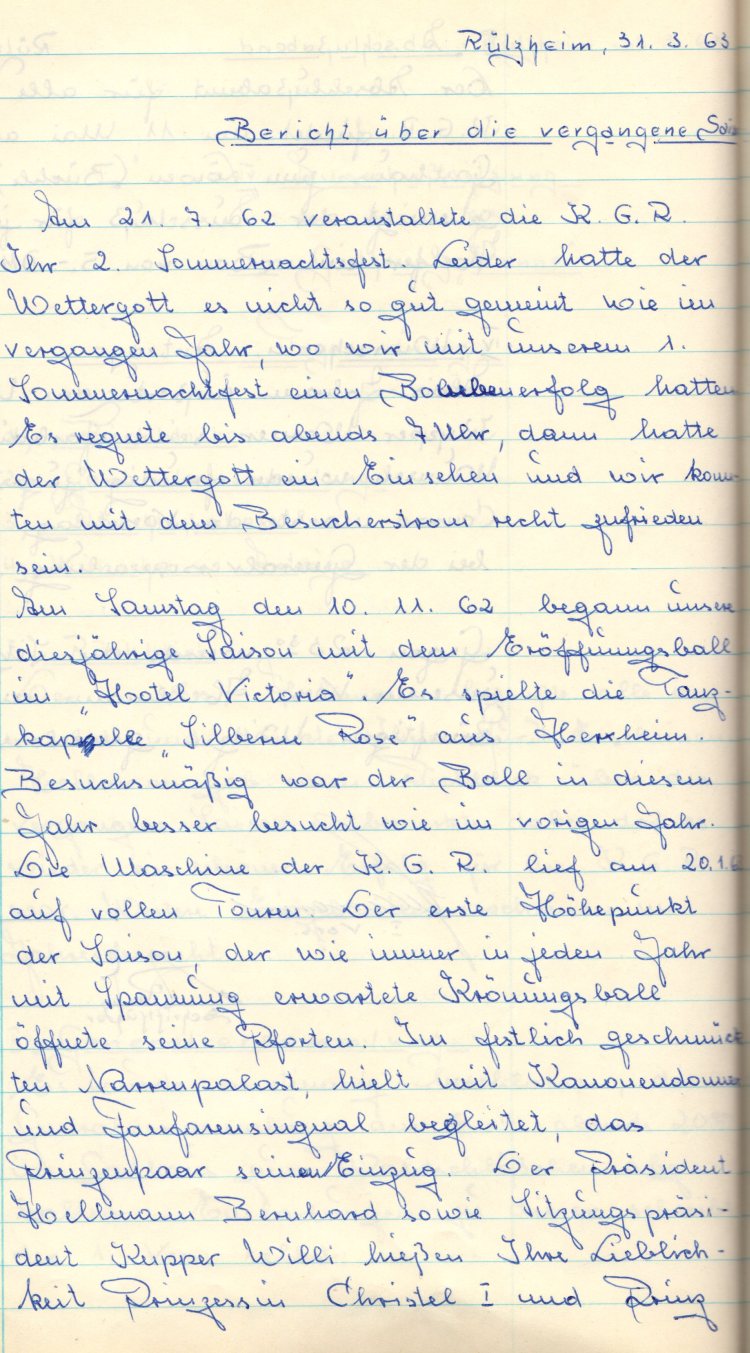 Rülzheim, 31. 3. 63
Bericht über die vergangene
Am 21. 7. 62 veranstaltete die K. G. R.
Ihr 2. Sommernachtsfest. Leider hatte der
Wettergott es nicht so gut gemeint wie im
vergangen Jahr, wo wir mit unserem 1.
Sommernachtfest einen Bombenerfolg hatten
Es regnete bis abends 7 Uhr, dann hatte
der Wettergott ein Einsehen und wir konn-
ten mit dem Besucherstrom recht zufrieden
sein.
Am Samstag den 10. 11. 62 begann unsere
diesjährige Saison mit dem Eröffnungsball
im "Hotel Victoria". Es spielte die Tanz-
kapelle "Silberne Rose" aus Herxheim.
Besuchsmäßig war der Ball in diesem
Jahr besser besucht wie im vorigen Jahr.
Die Maschine der K. G. R. lief am 20.1.6
auf vollen Touren. Der erste Höhepunkt
der Saison, der wie immer in jeden Jahr
mit Spannung erwartete Krönungsball
öffnete seine Pforten. Im festlich geschmück
ten Narrenpalast, hielt mit Kanonendonner
und Fanfarensingnal begleitet, das
Prinzenpaar seinen Einzug. Der Präsident
Hellmann Bernhard sowie Sitzungspräsi-
dent Kupper Willi hießen Ihre Lieblich-
keit Prinzessin Christel I und Prinz